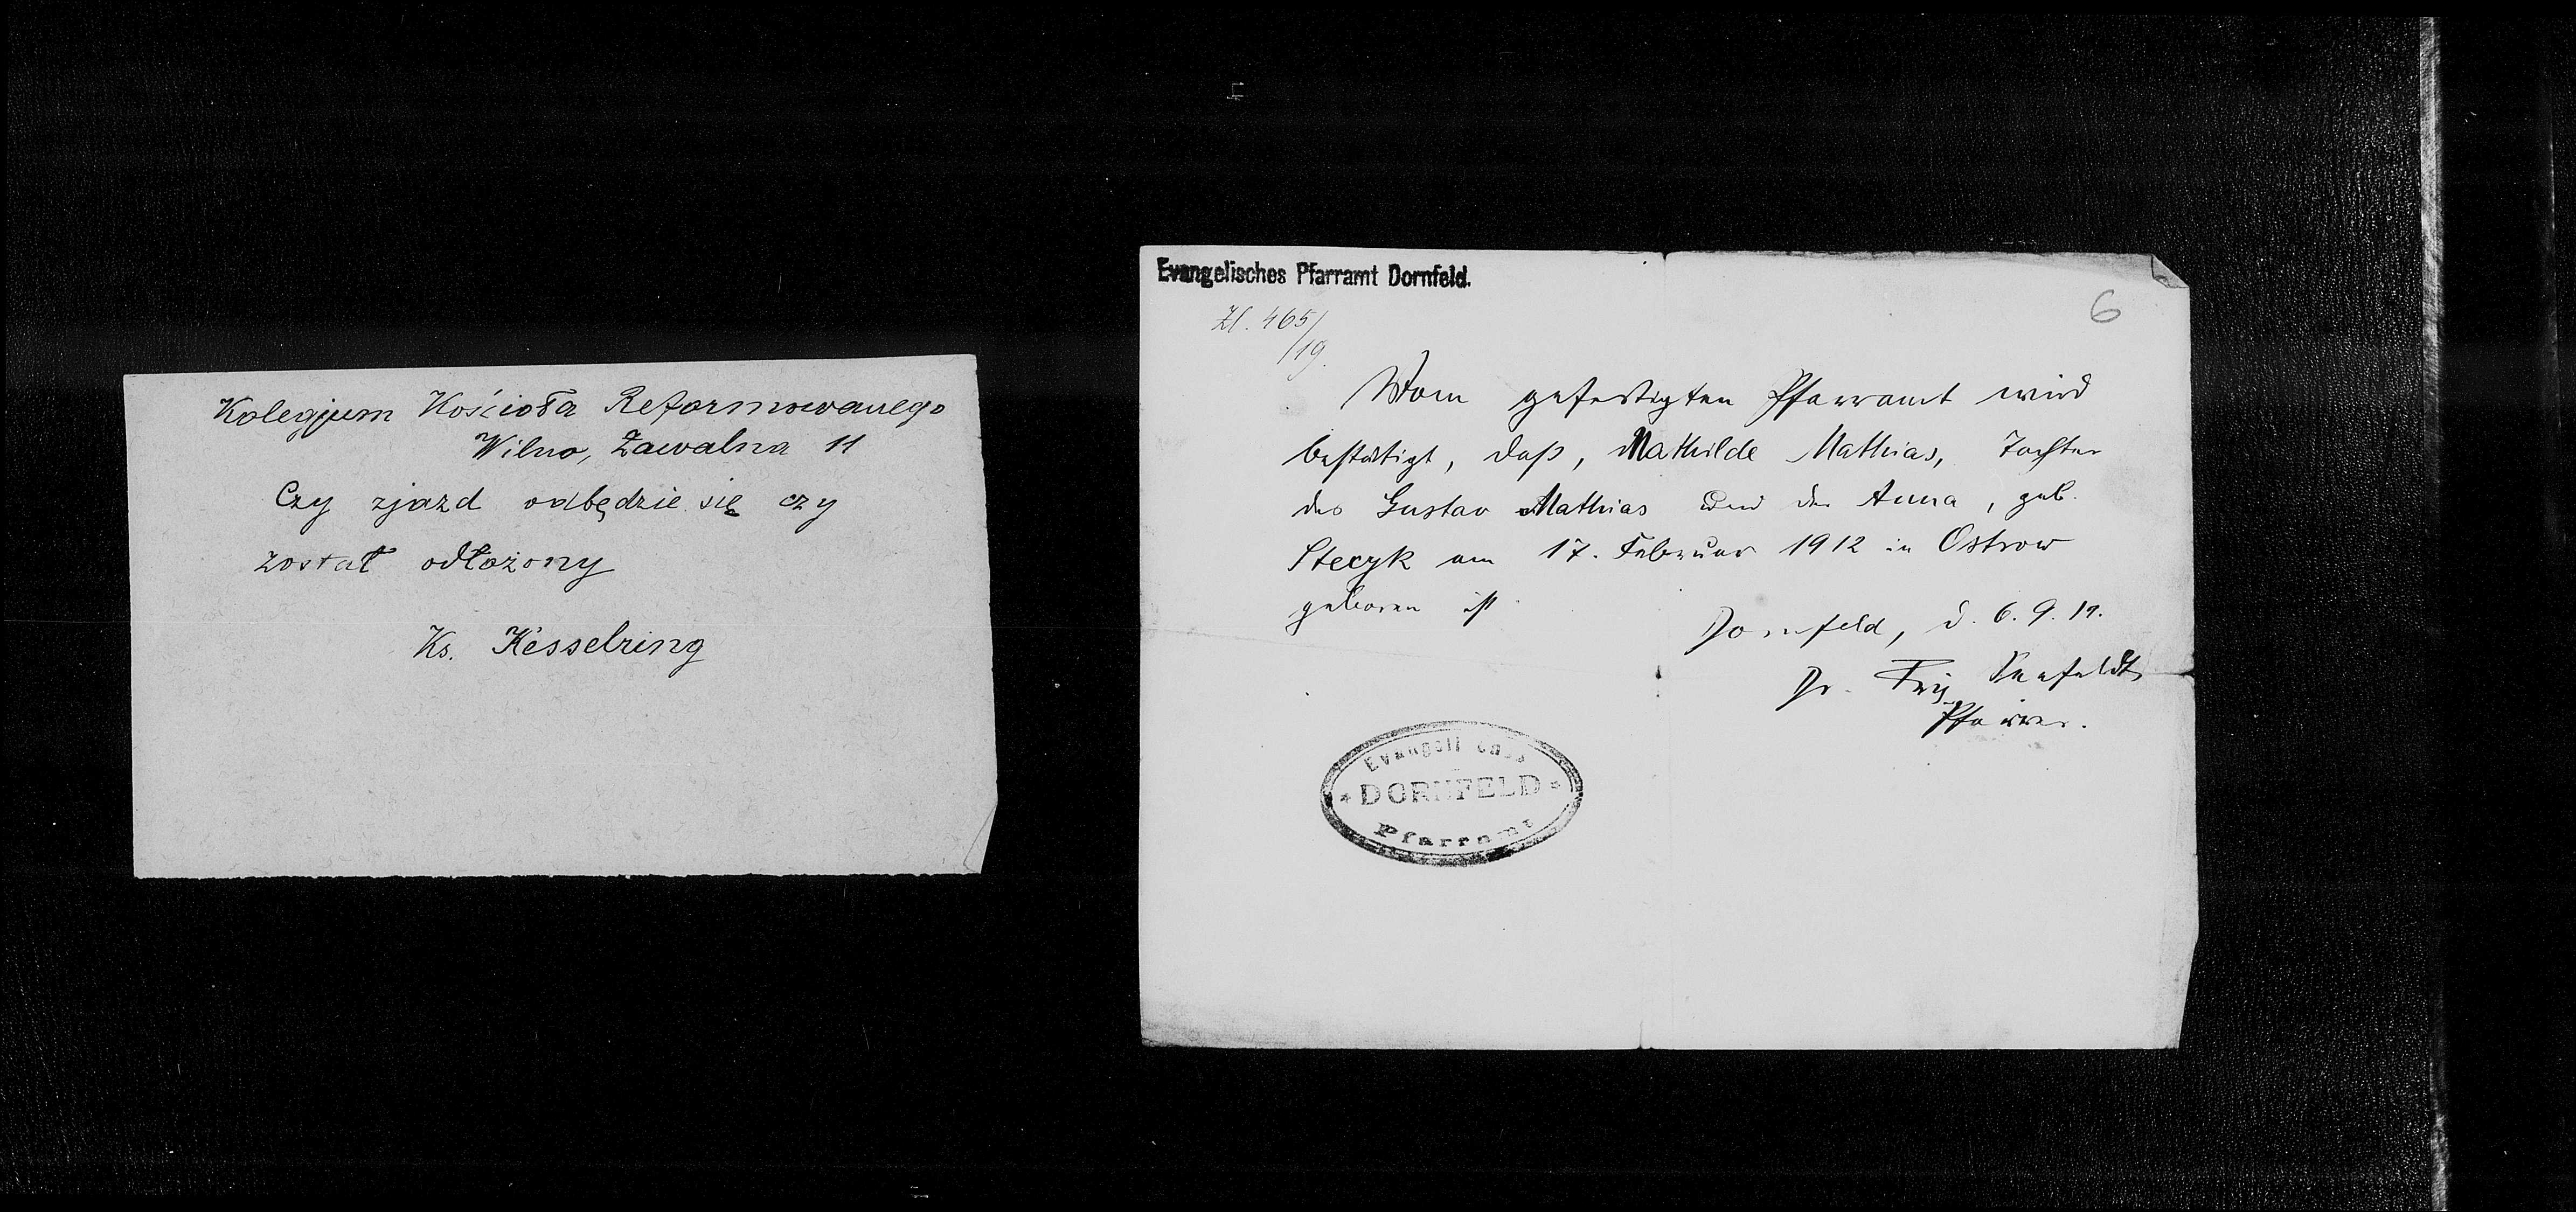 Kolegjum Kościoła Reformowanego
Wilno, Zawalna 11
Czy zjazd odbędzie się czy
został odłożony
Ks. Kesselring
Evangelisches Pfarramt Dornfeld.
Zl. 465/
/19.
6
Vom gefertigten Pfarramt wird
bestätigt, daß, Mathilde Mathias, Tochter
des Gustav Mathias und der Anna, geb.
Stecyk am 17. Februar 1912 in Ostrow
geboren ist.
Dornfeld, d. 6. 9. 19.
Dr. Fritz Seefeldt
Pfarrer.
Evangelisches
* DORNFELD *
Pfarramt